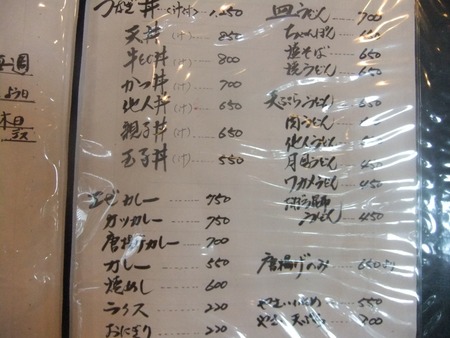 丼(汁付) 1,250
天丼(汁) 850
牛とじ丼(汁) 800
かつ丼(汁) 700
他人丼(汁) 650
親子丼(汁) 650
玉子丼(汁) 550
えびカレー 750
カツカレー 750
唐揚げカレー 700
カレー 550
焼めし 600
ライス 220
おにぎり 220
皿うどん 700
ちゃんぽん
焼そば 650
焼うどん 650
天ぷらうどん 650
肉うどん
他人うどん
月見うどん 450
ワカメうどん 450
うどん 450
唐揚げのみ 650より
やさいいため 550
やさい天ぷら 700
週
よう日
本日